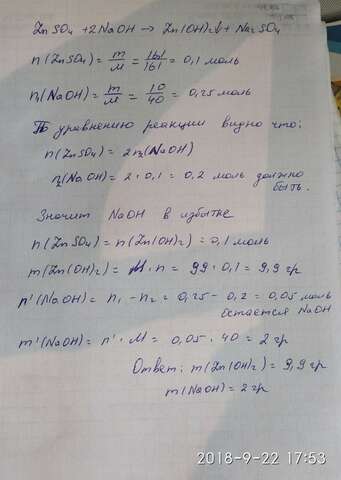 ZnSO₄ + 2NaOH → Zn(OH)₂↓ + Na₂SO₄
n(ZnSO₄) = m/M = 16,1/161 = 0,1 моль
n₁(NaOH) = m/M = 10/40 = 0,25 моль
По уравнению реакции видно что:
n(ZnSO₄) = 2n₂(NaOH)
n₂(NaOH) = 2 · 0,1 = 0,2 моль должно
быть.
Значит NaOH в избытке
n(ZnSO₄) = n(Zn(OH)₂) = 0,1 моль
m(Zn(OH)₂) = M · n = 99 · 0,1 = 9,9 гр
n'(NaOH) = n₁ - n₂ = 0,25 - 0,2 = 0,05 моль
остается NaOH
m'(NaOH) = n' · M = 0,05 · 40 = 2 гр
Ответ: m(Zn(OH)₂) = 9,9 гр
m(NaOH) = 2 гр
2018-9-22 17:53